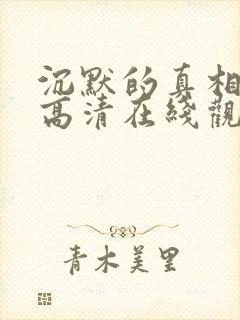 沉默的真相
高清在线觀
青木美里